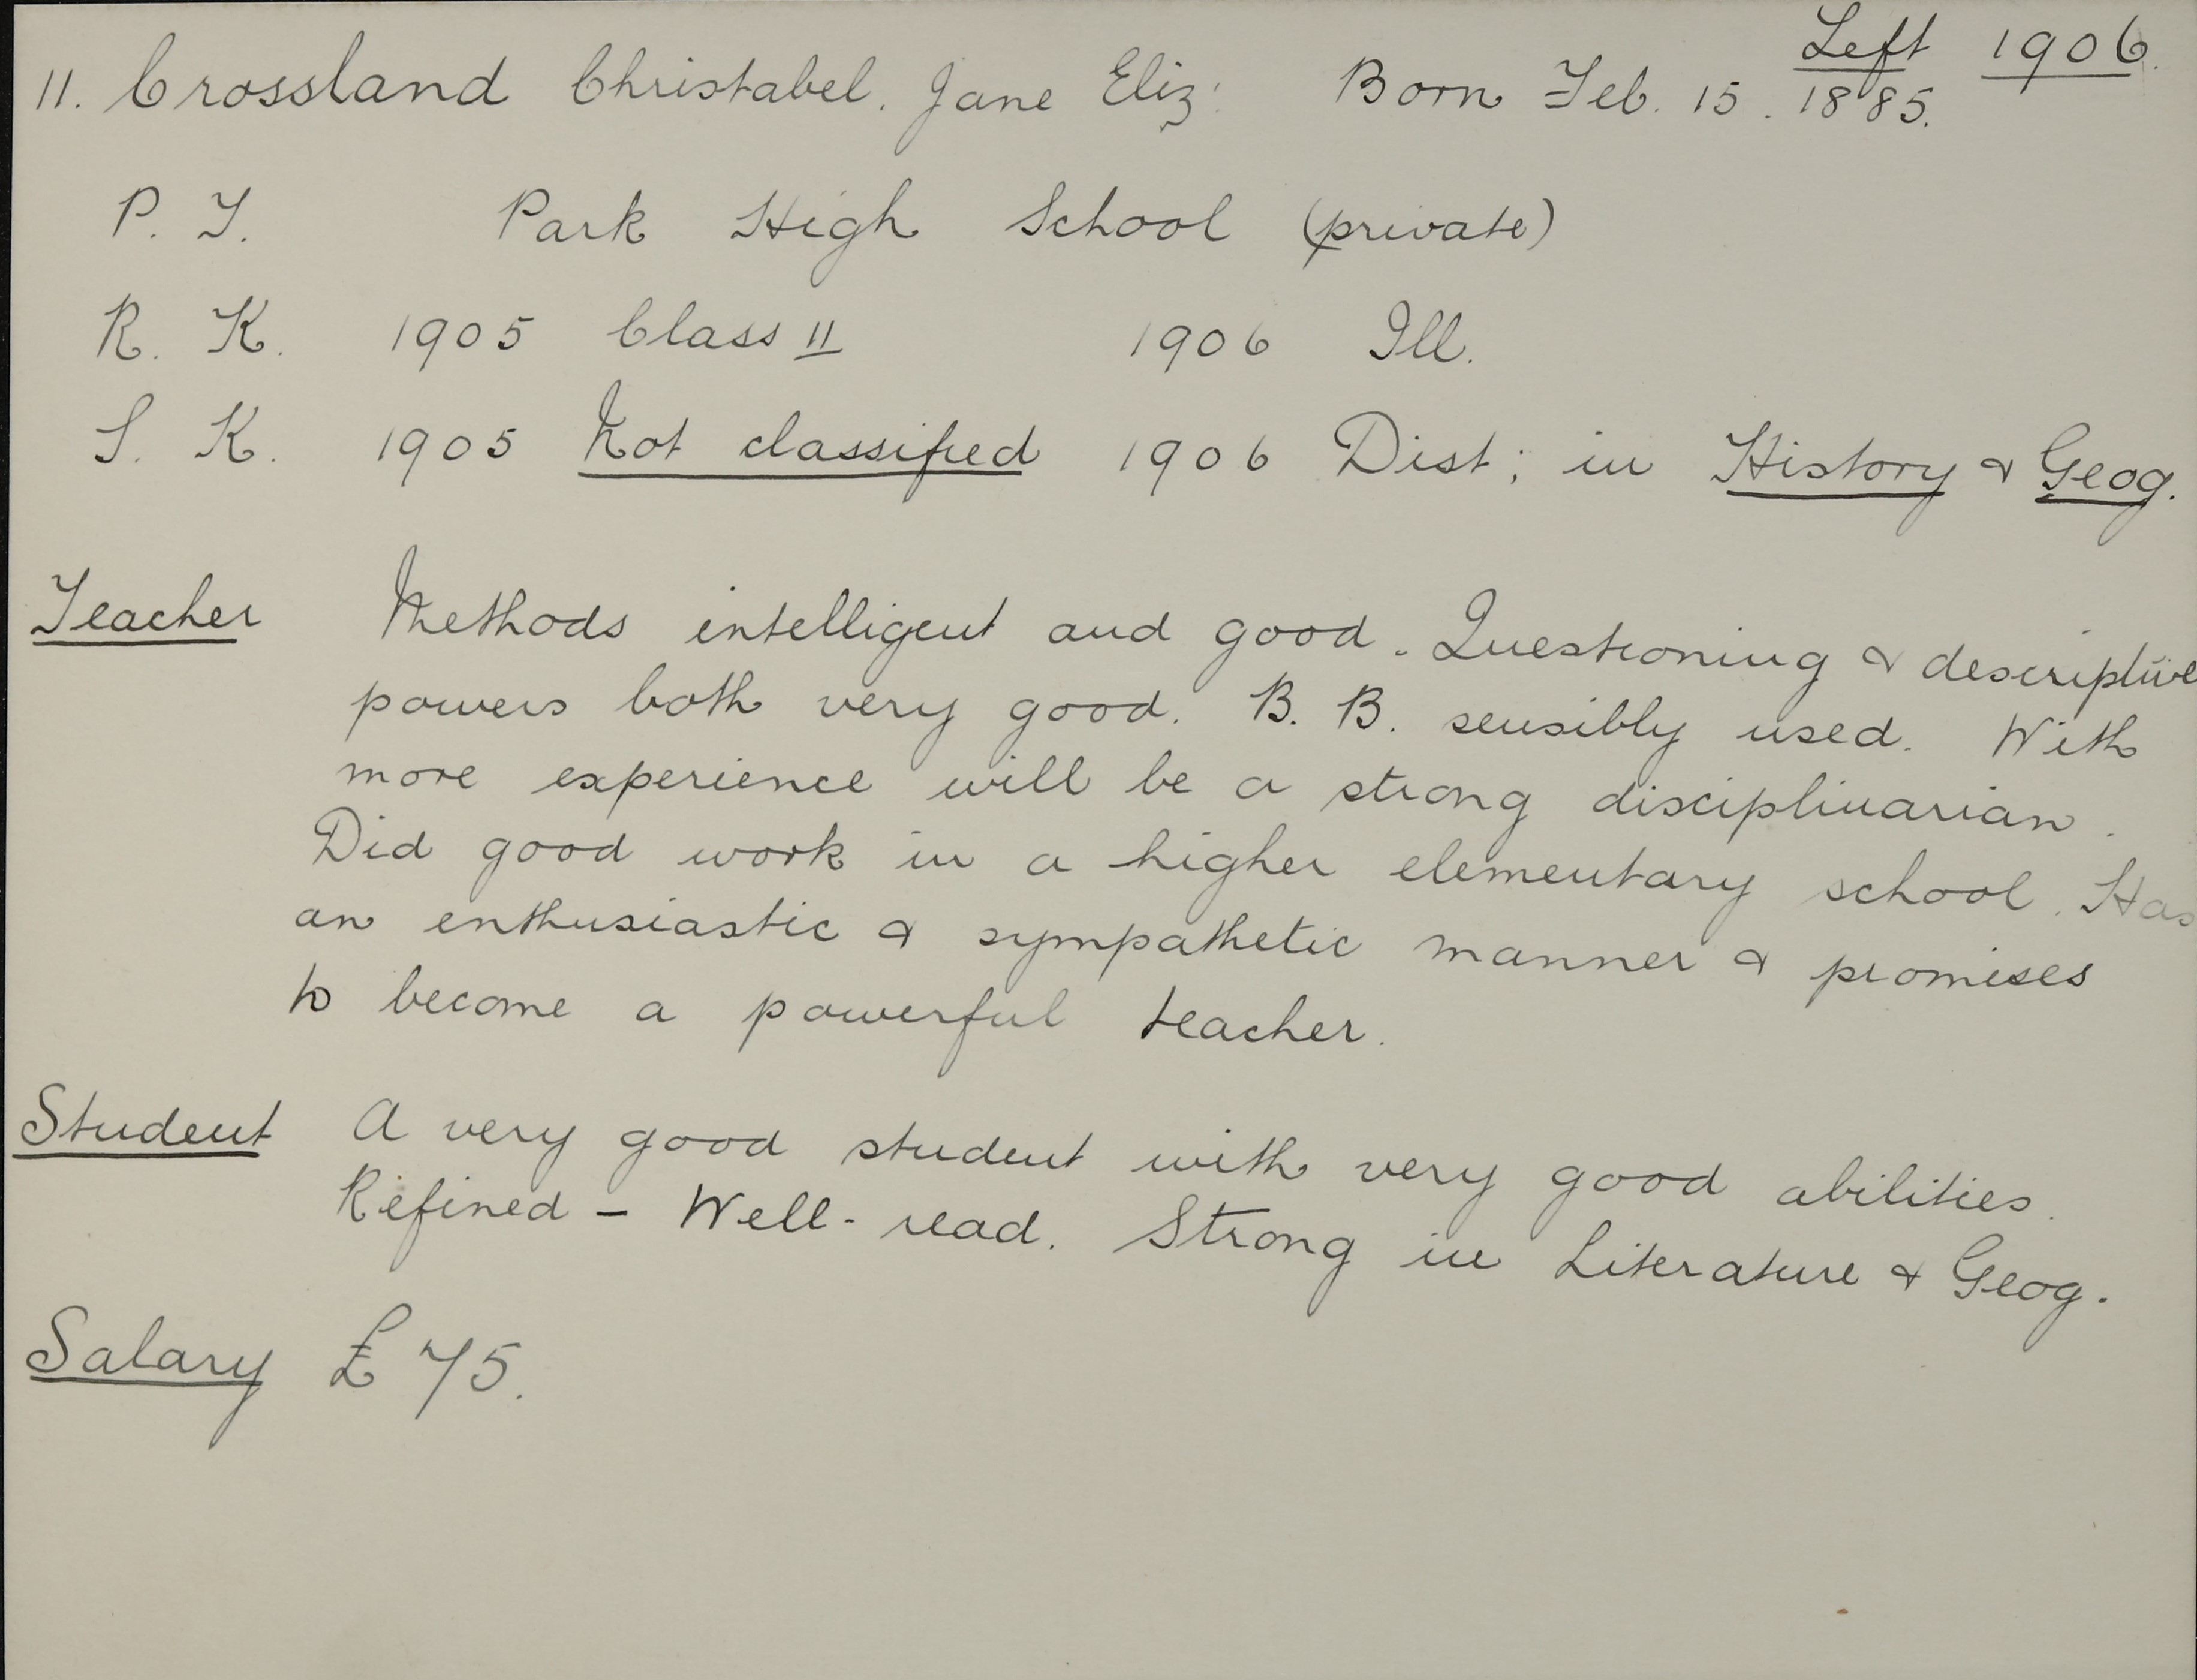 Left 1906.
11. Crossland Christabel. Jane Eliz: Born Feb. 15. 1885.
P. T. Park High School (private)
R. K. 1905 Class II 1906 Ill.
S. K. 1905 Not classified 1906 Dist; in History & Geog.
Teacher Methods intelligent and good. Questioning & descriptive
powers both very good. B. B. sensibly used. With
more experience will be a strong disciplinarian.
Did good work in a higher elementary school. Has
an enthusiastic & sympathetic manner & promises
to become a powerful teacher.
Student A very good student with very good abilities.
Refined - Well-read. Strong in Literature & Geog.
Salary £75.